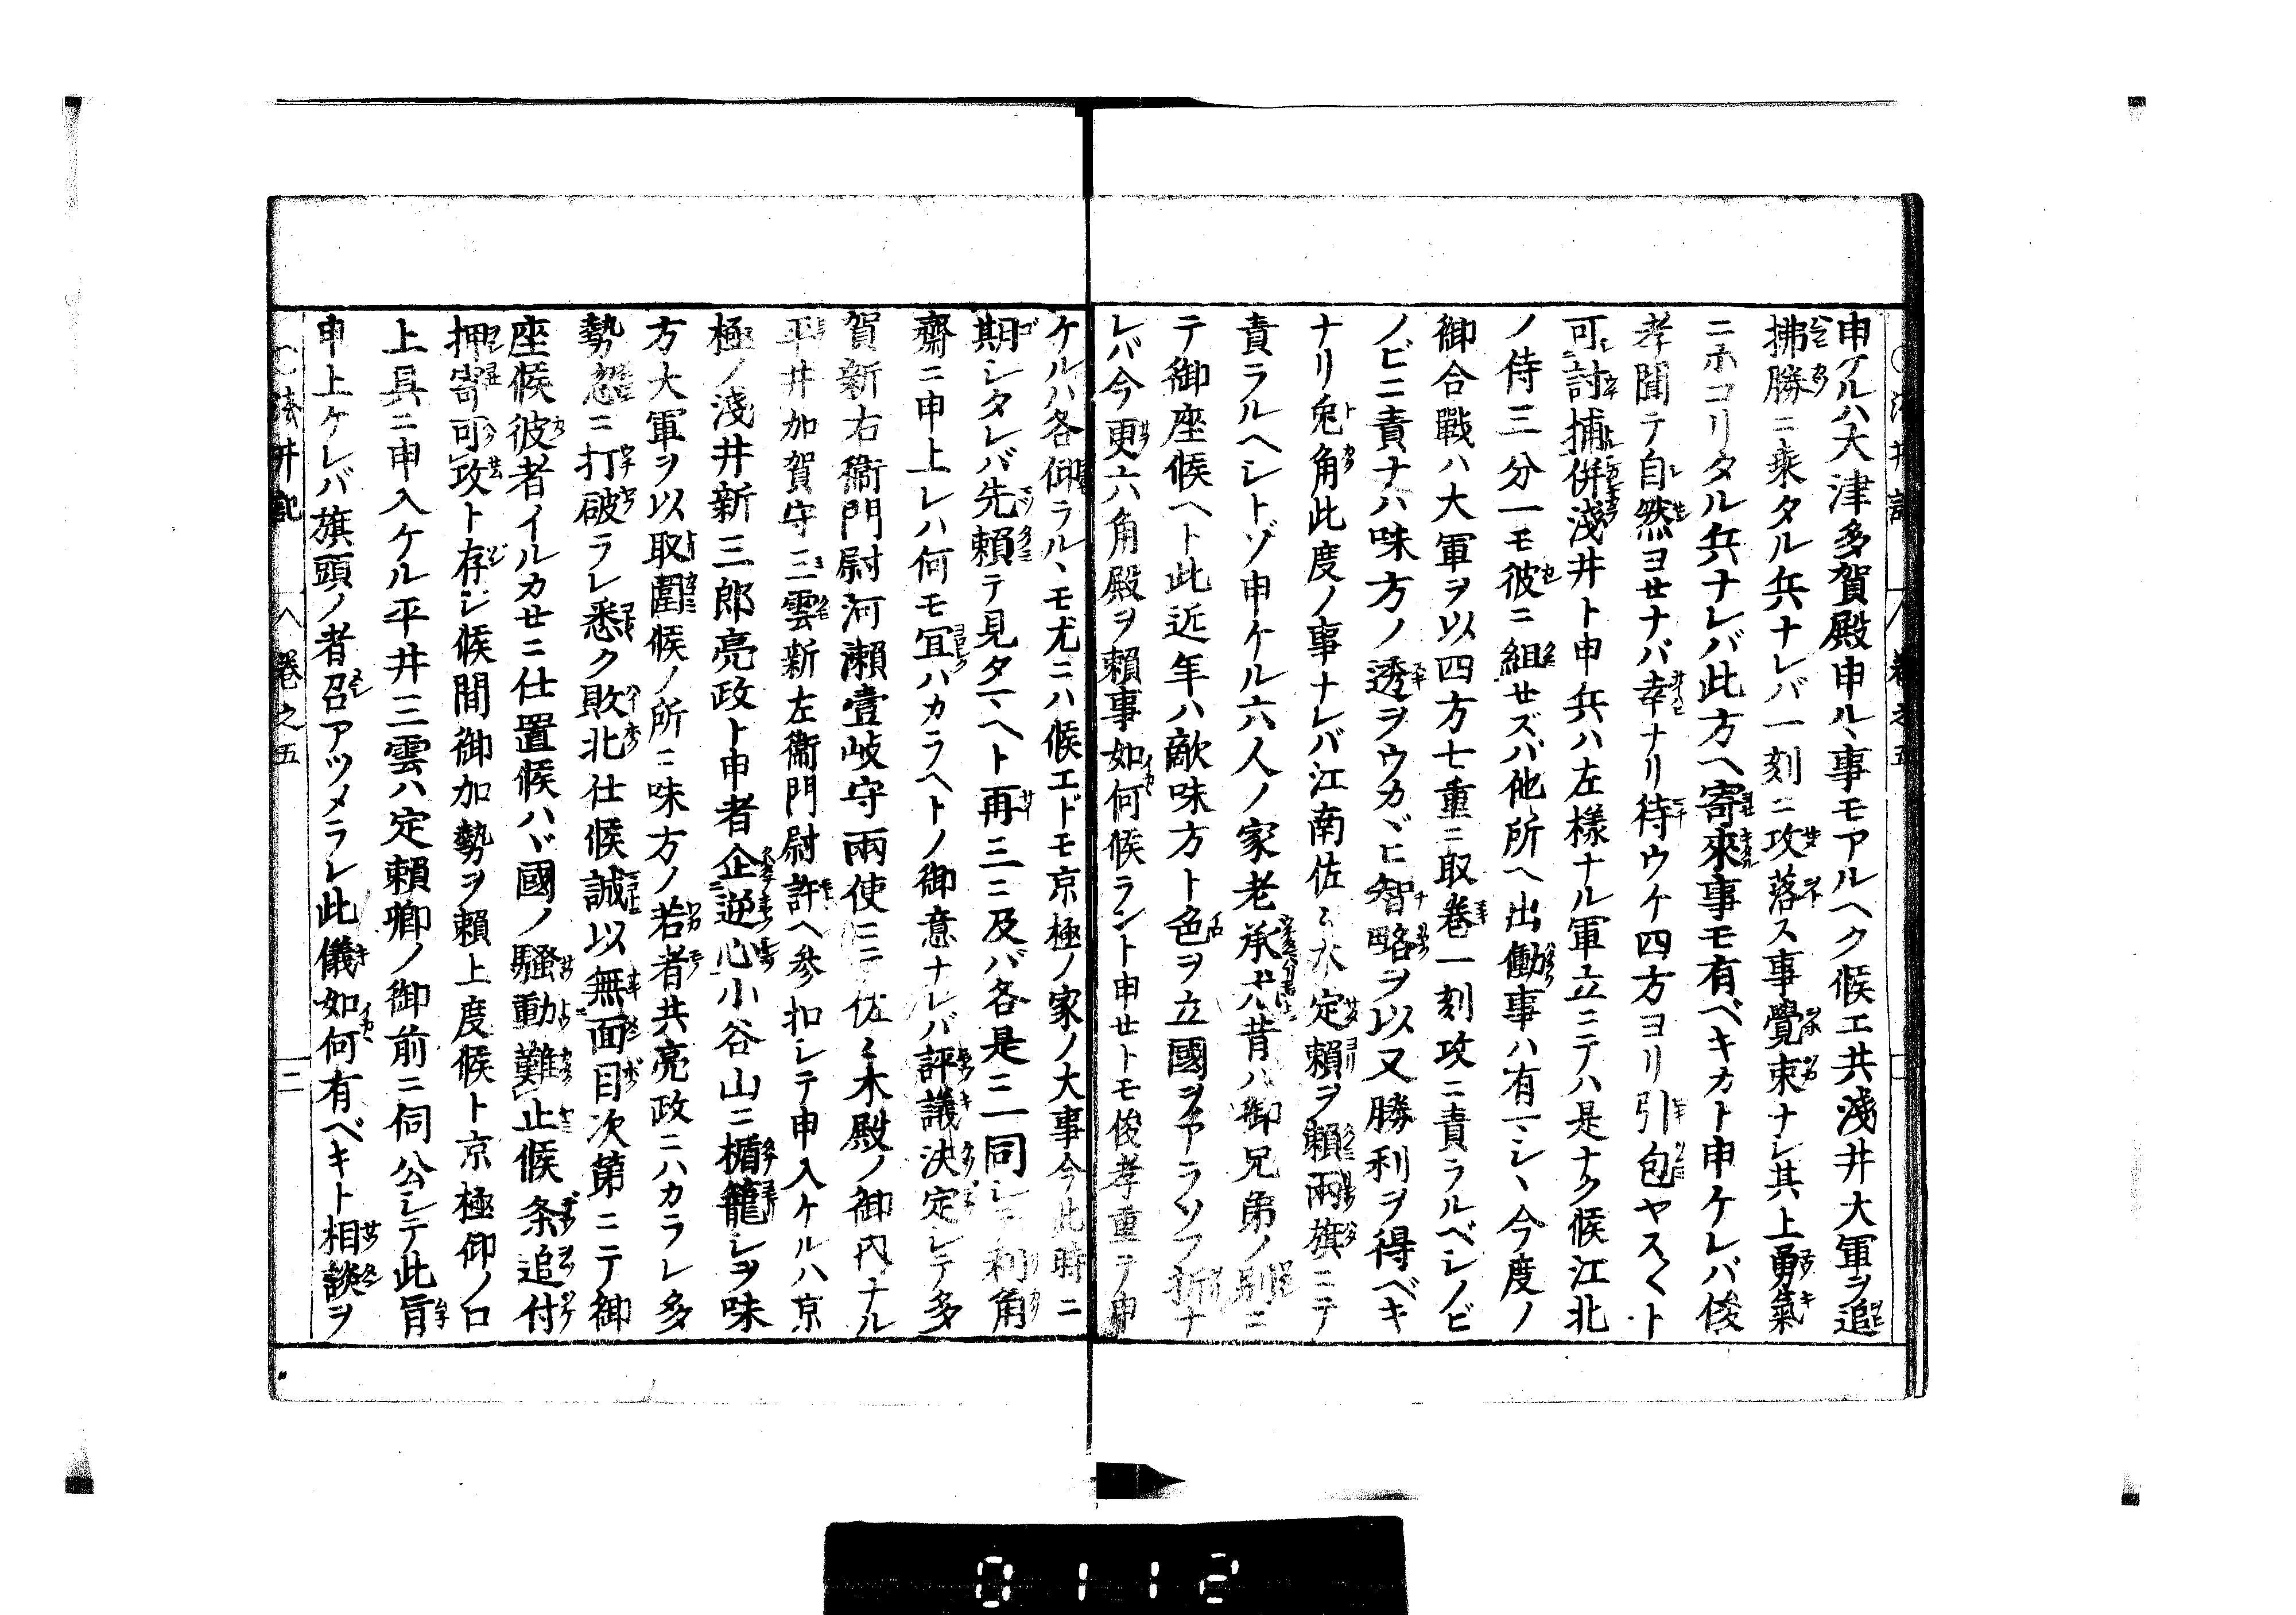 申ケルハ大津多賀殿申ル、事モアルヘク候エ共淺井大軍ヲ追
拂勝ニ乗タル兵ナレバ一刻ニ攻落ス事覺束ナシ其上勇氣
ニホコリタル兵ナレバ此方ヘ寄來事モ有ベキカト申ケレバ俊
孝聞テ自然ヨセナバ幸ナリ待ウケ四方ヨリ引包ヤス〱ト
可討捕併淺井ト申兵ハ左様ナル軍立ニテハ是ナク候江北
ノ侍三分一モ彼ニ組セズバ他所ヘ出働事ハ有マシ、今度ノ
御合戰ハ大軍ヲ以四方七重ニ取巻一刻攻ニ責ラルベシノビ
ノビニ責ナハ味方ノ透ヲウカヾヒ智略ヲ以又勝利ヲ得ベキ
ナリ兎角此度ノ事ナレバ江南佐々木定頼ヲ頼両旗ニテ
責ラルヘシトゾ申ケル六人ノ家老承サハ昔ハ御兄弟ノ別ニ
テ御座候ヘト此近年ハ敵味方ト色ヲ立國ヲアラソフ折ナ
レバ今更六角殿ヲ頼事如何候ラント申セトモ俊孝重テ申
ケルハ各仰ラル、モ尤ニハ候エドモ京極ノ家ノ大事今此時ニ
期シタレバ先頼テ見タマヘト再三ニ及バ各是ニ同シテ利角
齋ニ申上レハ何モ宜ハカラヘトノ御意ナレバ評議決定シテ多
賀新右衞門尉河瀬壹岐守兩使ニ佐々木殿ノ御内ナル
平井加賀守三雲新左衞門尉許ヘ参扣シテ申入ケルハ京
極ノ淺井新三郎亮政ト申者企逆心小谷山ニ楯籠シヲ味
方大軍ヲ以取圍候ノ所ニ味方ノ若者共亮政ニハカラレ多
勢忽ニ打破ラレ悉ク敗北仕候誠以無面目次第ニテ御
座候彼者イルカセニ仕置候ハヾ國ノ騒動難止候条追付
押寄可攻ト存ジ候間御加勢ヲ頼上度候ト京極仰ノ口
上具ニ申入ケル平井三雲ハ定頼卿ノ御前ニ伺公シテ此旨
申上ケレバ旗頭ノ者召アツメラレ此儀如何有ベキト相談ヲ
〇淺井記 卷之五 二
0112